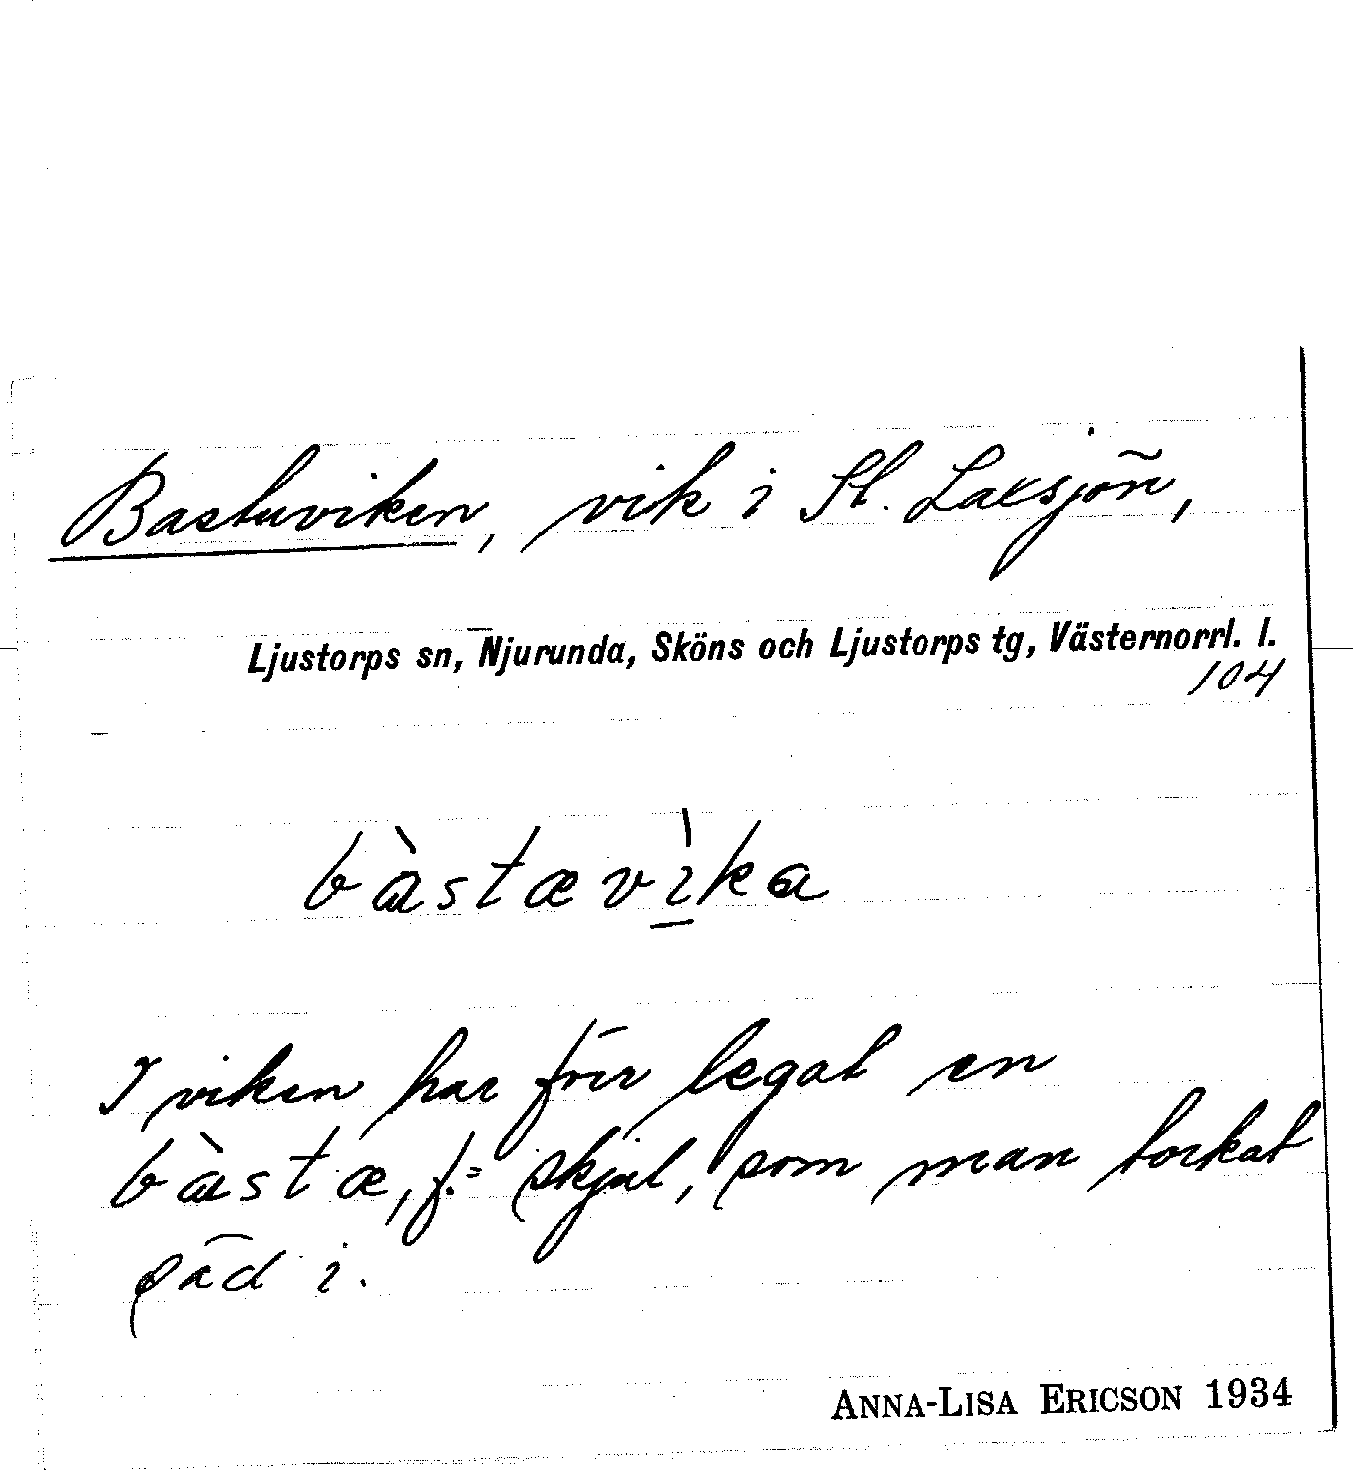 Bastuviken, vik i St. Laxsjön,
Ljustorps sn, Njurunda, Sköns och Ljustorps tg, Västernorrl. l.
104
bàstævìka
I viken har förr legat en
bàstæ, f. = skjul, som man torkat
säd i.
ANNA-LISA ERICSON 1934